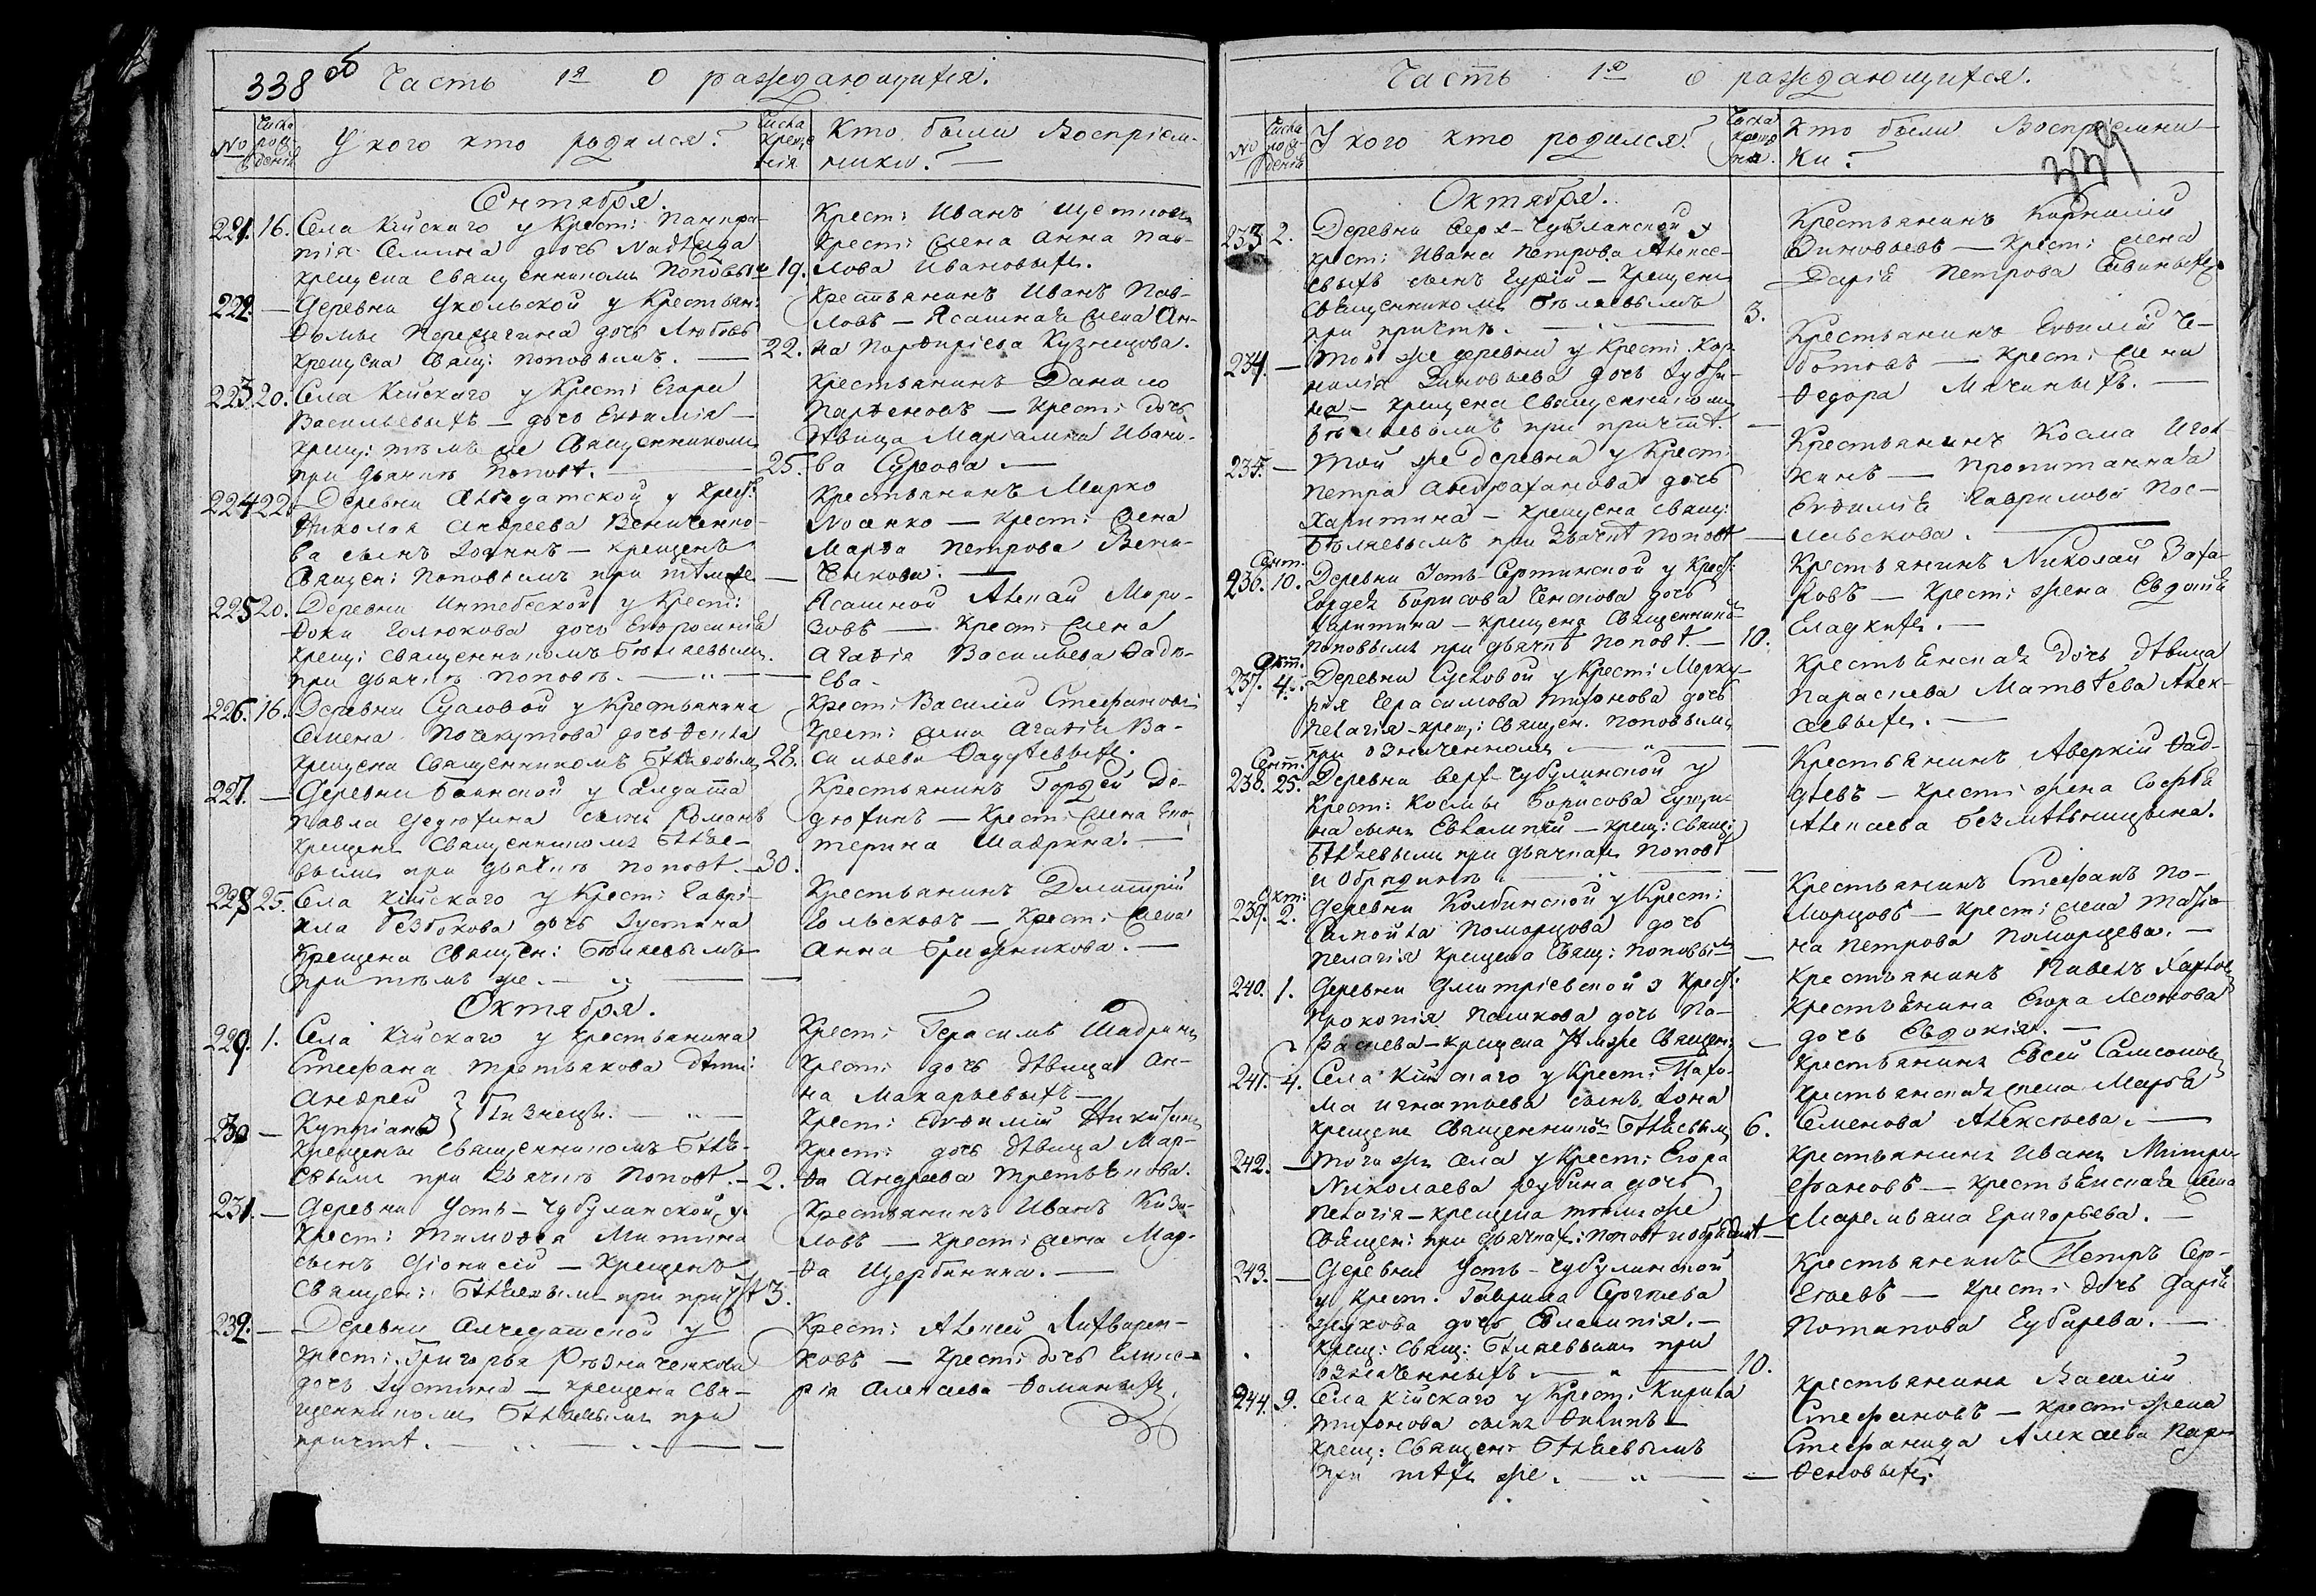 338 об
Часть 1я О раждающихся.
№
Числа рождения
У кого кто родился?
Числа крещения
Кто были Восприем-
ники? —
Сентября.
221. 16. Села Кійскаго у Крест:
Семина дочь Надежда
крещена Священникомъ Поповым 19.
Крест: Иванъ
Крест: жена Анна Пав-
лова Ивановыхъ.
222. — Деревни у Крестьян:
Фомы дочь Любовь
крещена Свящ: Поповымъ. — 22.
Крестьянинъ Иванъ Пав-
ловъ — Ясашная жена Ан-
на Порфирiева Кузнецова.
223. 20. Села Кійскаго у Крест: Егора
Васильевыхъ — дочь Евфимія —
Крещ: тѣмъ же Священникомъ
при дьячкѣ Поповѣ. — 25.
Крестьянинъ Данило
Парѳеновъ — Крест: дочь
дѣвица Маріамна Ивано-
ва —
224 22. Деревни у Крест:
Николая Андреева Вениченко-
ва сынъ Іоаннъ — крещенъ
Священ: Поповымъ при тѣмже —
Крестьянинъ Марко
— Крест: жена
Марѳа Петрова Вени-
ченкова. —
225 20. Деревни у Крест:
Фоки Голюкова дочь Евфросинія
Крещ: священникомъ Бѣляевымъ
при дьячкѣ Поповѣ. —
Ясашной Алексѣй Моро-
зовъ — Крест: жена
Агафія Васильева Фадѣ-
ева.
226. 16. Деревни Сусловой у Крестьянина
Семена дочь Ѳекла
Крещена Священникомъ Бѣляевымъ 28.
Крест: Василій Стефановъ
Крест: жена Агафія Ва-
сильева Фаддѣевыхъ.
227. — Деревни у Салдата
Павла Федюхина сынъ Романъ
Крещенъ Священникомъ Бѣляе-
вымъ при дьячкѣ Поповѣ. — 30.
Крестьянинъ Гордей Фе-
дюхинъ — Крест: жена Ека-
терина Шадрина. —
228 25. Села Кійскаго у Крест: Гаврі-
ила Безбокова дочь Іустина
Крещена Священ: Бѣляевымъ
при тѣмъ же. —
Крестьянинъ Дмитрій
— Крест: жена
Анна —
Октября.
229. 1. Села Кійскаго у крестьянина
Стефана Третьякова дѣти:
Андрей
230 — Купріанъ } близнецы. —
Крещены Священникомъ Бѣляе-
вымъ при дьячкѣ Поповѣ. — 2.
Крест: Герасимъ Шадринъ
Крест: дочь дѣвица Ан-
на Макарьевыхъ —
Крест: Евфимій Никитинъ
Крест: дочь дѣвица Мар-
ѳа Андреева Третьякова.
231. — Деревни Усть-Чубуланской, у
Крест: Тимоѳея Митина
сынъ Діонисій — Крещенъ
Священ: Бѣляевымъ при причтѣ 3.
Крестьянинъ Иванъ Кизи-
ловъ — Крест: жена Мар-
ѳа Щербинина. —
232. — Деревни Алчедатской у
Крест: Григорья Рѣзниченкова
дочь Іустина — крещена Свя-
щенникомъ Бѣляевымъ при
причтѣ. —
Крест: Алексѣй Литварен-
ковъ — Крест: дочь Глике-
рія Алексѣева Фоминыхъ.
Часть 1я О раждающихся.
№
Числа рождения
У кого кто родился?
Числа крещения
Кто были Восприемни-
ки?
339
Октября.
233 2. Деревни Верх-Чубуланской у
Крест: Ивана Петрова Алексе-
евыхъ сынъ Гурій — Крещенъ
Священникомъ Бѣляевымъ
при причтѣ. — 3.
Крестьянинъ Корнилій
Зиновьевъ — Крест: жена
Дарія Петрова Савиныхъ
234. — Той же деревни у Крест: Кор-
нилія Зиновьева дочь
— Крещена Священникомъ
Бѣляевымъ при причтѣ. —
Крестьянинъ Евфимій Че-
ботовъ — Крест: жена
Федора Мичиныхъ. —
235. — Той же деревни у Крест:
Петра дочь
Харитина — Крещена Свящ:
Бѣляевымъ при дьячкѣ Поповѣ —
Крестьянинъ Косма Игон-
нинъ — Пропитанная
Евфимія Гаврилова Пос-
.
Сент.
236. 10. Деревни Усть-Сертинской у Крест:
Гордея Борисова дочь
Харитина — крещена Священникомъ
Поповымъ при дьячкѣ Поповѣ. — 10.
Крестьянинъ Николай Заха-
ровъ — Крест: жена Евдокія
Гладкихъ. —
Окт.
237. 4. Деревни Сусловой у Крест: Мерку-
рія Герасимова Тихонова дочь
Пелагія — Крещ: Священ. Поповымъ
при означенномъ —
Крестьянская дочь дѣвица
Параскева Матвѣева Алек-
сѣевыхъ. —
Сент.
238. 25. Деревни Верх-Чубулинской у
Крест: Космы Борисова
сынъ Евлампій — Крещ: Свящ:
Бѣляевымъ при дьячкахъ Поповѣ
и —
Крестьянинъ Аверкій Фад-
дѣевъ — Крест: жена Софья
Алексѣева Безмѣльницына.
Окт:
239. 2. Деревни Колбинской у Крест:
Самойла Поморцова дочь
Пелагія Крещена Свящ: Поповымъ —
Крестьянинъ Стефанъ По-
морцовъ — Крест: жена Татья-
на Петрова Поморцева. —
240. 1. Деревни Дмитріевской у Крест:
Прокопія Пашкова дочь Па-
раскева — крещена тѣмже Священ: —
Крестьянинъ Павелъ
Крестьянина Егора Леонова
дочь Евдокія. —
241. 4. Села Кійскаго у Крест: Пахо-
ма Игнатьева сынъ Іона
Крещенъ Священникомъ Бѣляевымъ 6.
Крестьянинъ Евсей Самсоновъ
Крестьянская жена Марья
Семенова Алексѣева. —
242. — Тогожъ села у Крест: Егора
Николаева Зубина дочь
Пелагія — крещена тѣмже
Священ: при дьячках: Поповѣ и —
Крестьянинъ Иванъ Митро-
фановъ — Крестьянская жена
Маремьяна Григорьева. —
243. — Деревни Усть-Чубулинской
у Крест. Гаврила Сергѣева
Жукова дочь Евлампія. —
Крещ: Свящ: Бѣляевымъ при
означенныхъ — 10.
Крестьянинъ Петръ Сер-
гѣевъ — Крест: дочь Дарія
Потапова Губарева. —
244. 9. Села Кійскаго у Крест: Кирила
Тихонова сынъ Филипъ —
Крещ: Священ: Бѣляевымъ
при тѣхъ же. —
Крестьянинъ Василій
Стефановъ — Крест: жена
Стефанида Алексѣева Пар-
ѳеновыхъ.